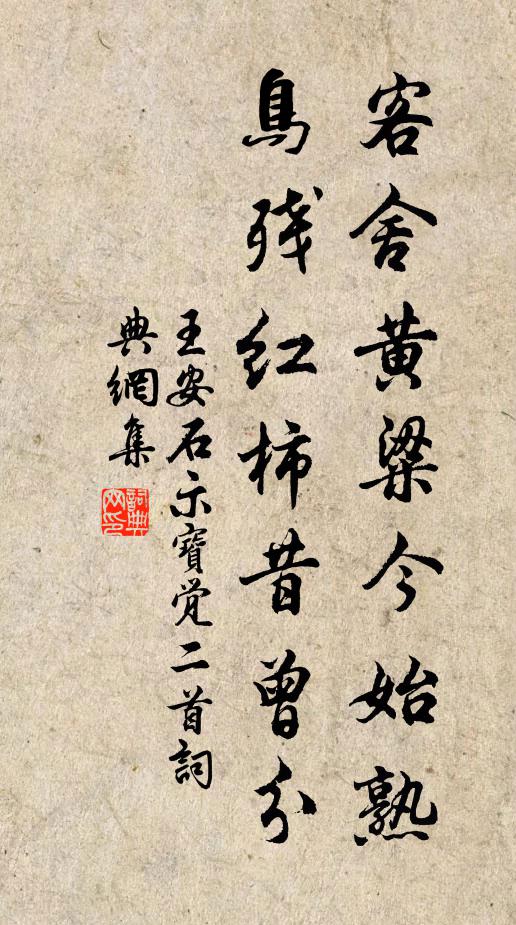 客舍黃粱今始熟
鳥殘紅柿昔曾分
王安石示寶覺二首詞
典網集
詞典
网印